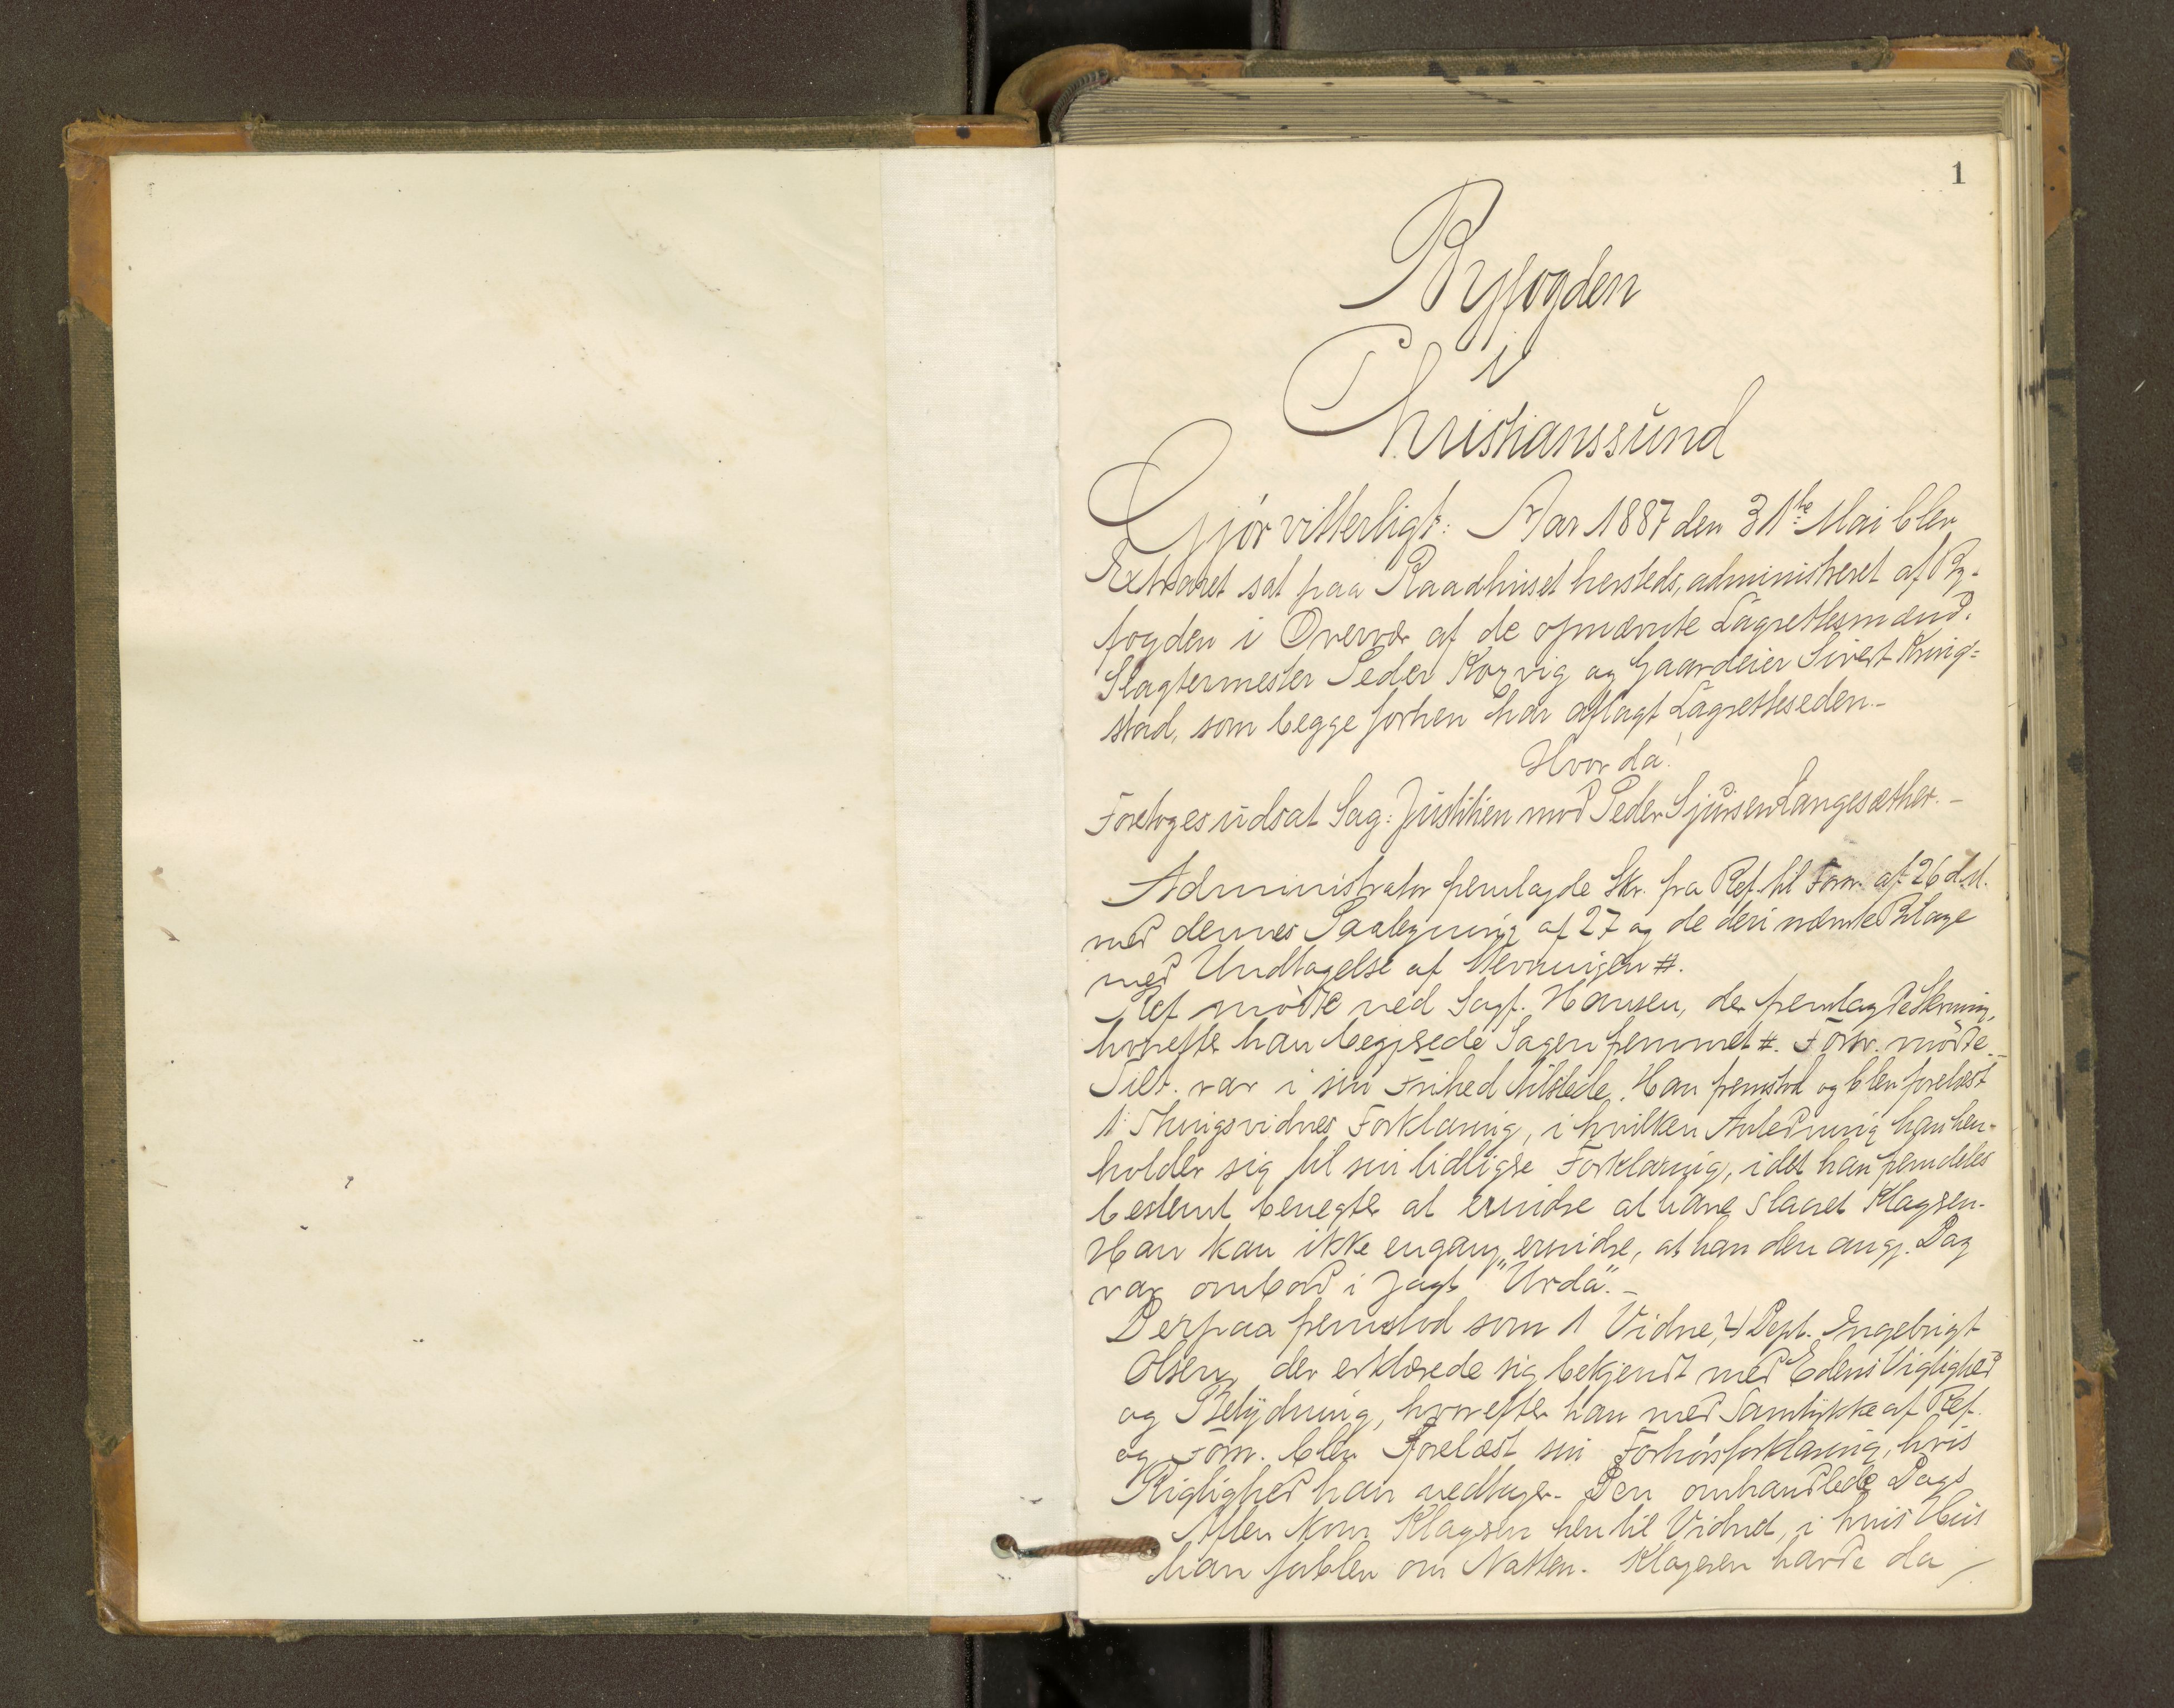 1
Byfogden
i
Christianssund
Gjør vitterligt: Aar 1887 den 31te Mai blev
Extraret sat paa Raadhuset hersteds, administreret af By-
fogden i Overvær af de opnævnte Lagrettesmænd:
Slagtermester Peder Korvig og Gaardeier Sivert Kring=
stad, som begge forhen har aflagt Lagretteseden.-
Hvorda!
Foretoges udsat Sag: Justitien mod Peder Sjursen Langesæther.-
Administrator fremlagde Skr. fra Ref. til Forsv. af 26 d.M.
med dennes Paategning af 27 og de deri nævnte Bilage
med Undtagelse af Stevningen #.
Ref mødte ved Sagf. Hansen, der fremlagde Stevning,
hvorefter han begjærede Sagen fremmet #. Forsv. mødte.-
Tilt. var i sin Frihed tilstede. Han fremstod og blev forelæst
1 Thingsvidnes Forklaring, i hvilken Anledning han hen-
holder sig til sin tidligere Forklaring, idet han fremdeles
bestemt benegter at erindre at have slaaet Klageren.
Han kan ikke engang erindre, at han den angj. Dag
var ombord i Jagt "Urda".-
Derpaa fremstod som 1 Vidne, 4) Dept. Engebrigt
Olsen, der erklærede sig bekjendt med Edens Vigtighed
og Betydning, hvorefter han med Samtykke af Ref.
og Forsv. blev forelæst sin Forhørsforklaring, hvis
Rigtighed han vedtager. Den omhandlede Dags
Aften kom Klageren hen til Vidnet, i hvis Hus
han forblev om Natten. Klageren havde da